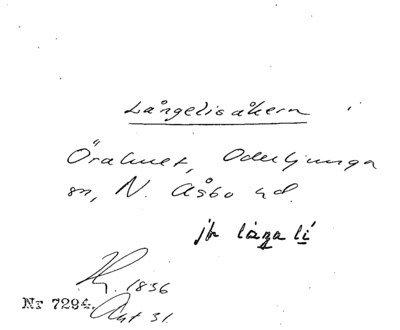 Långelisåkern
Örahult, Oderljunga
sn, N. Åsbo hd.
jfr låga li
1836
Nr 7294. Akt 31.